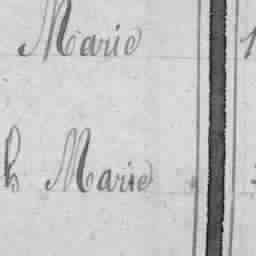 Marie
h Marie